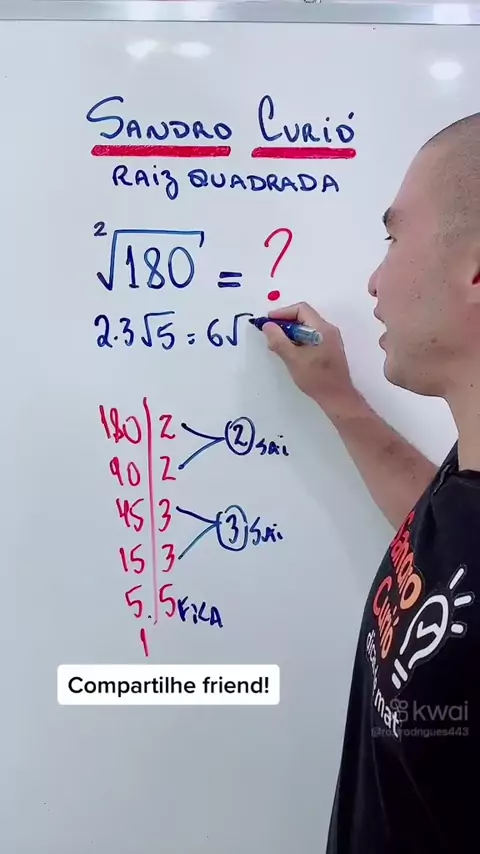 SANDRO CURIÓ
RAIZ QUADRADA
²√180 = ?
2.3√5 = 6√
180 | 2
90 | 2
2 SAI
45 | 3
15 | 3
3 SAI
5. | 5 FICA
1
Compartilhe friend!
Sandro
Curió
kwai